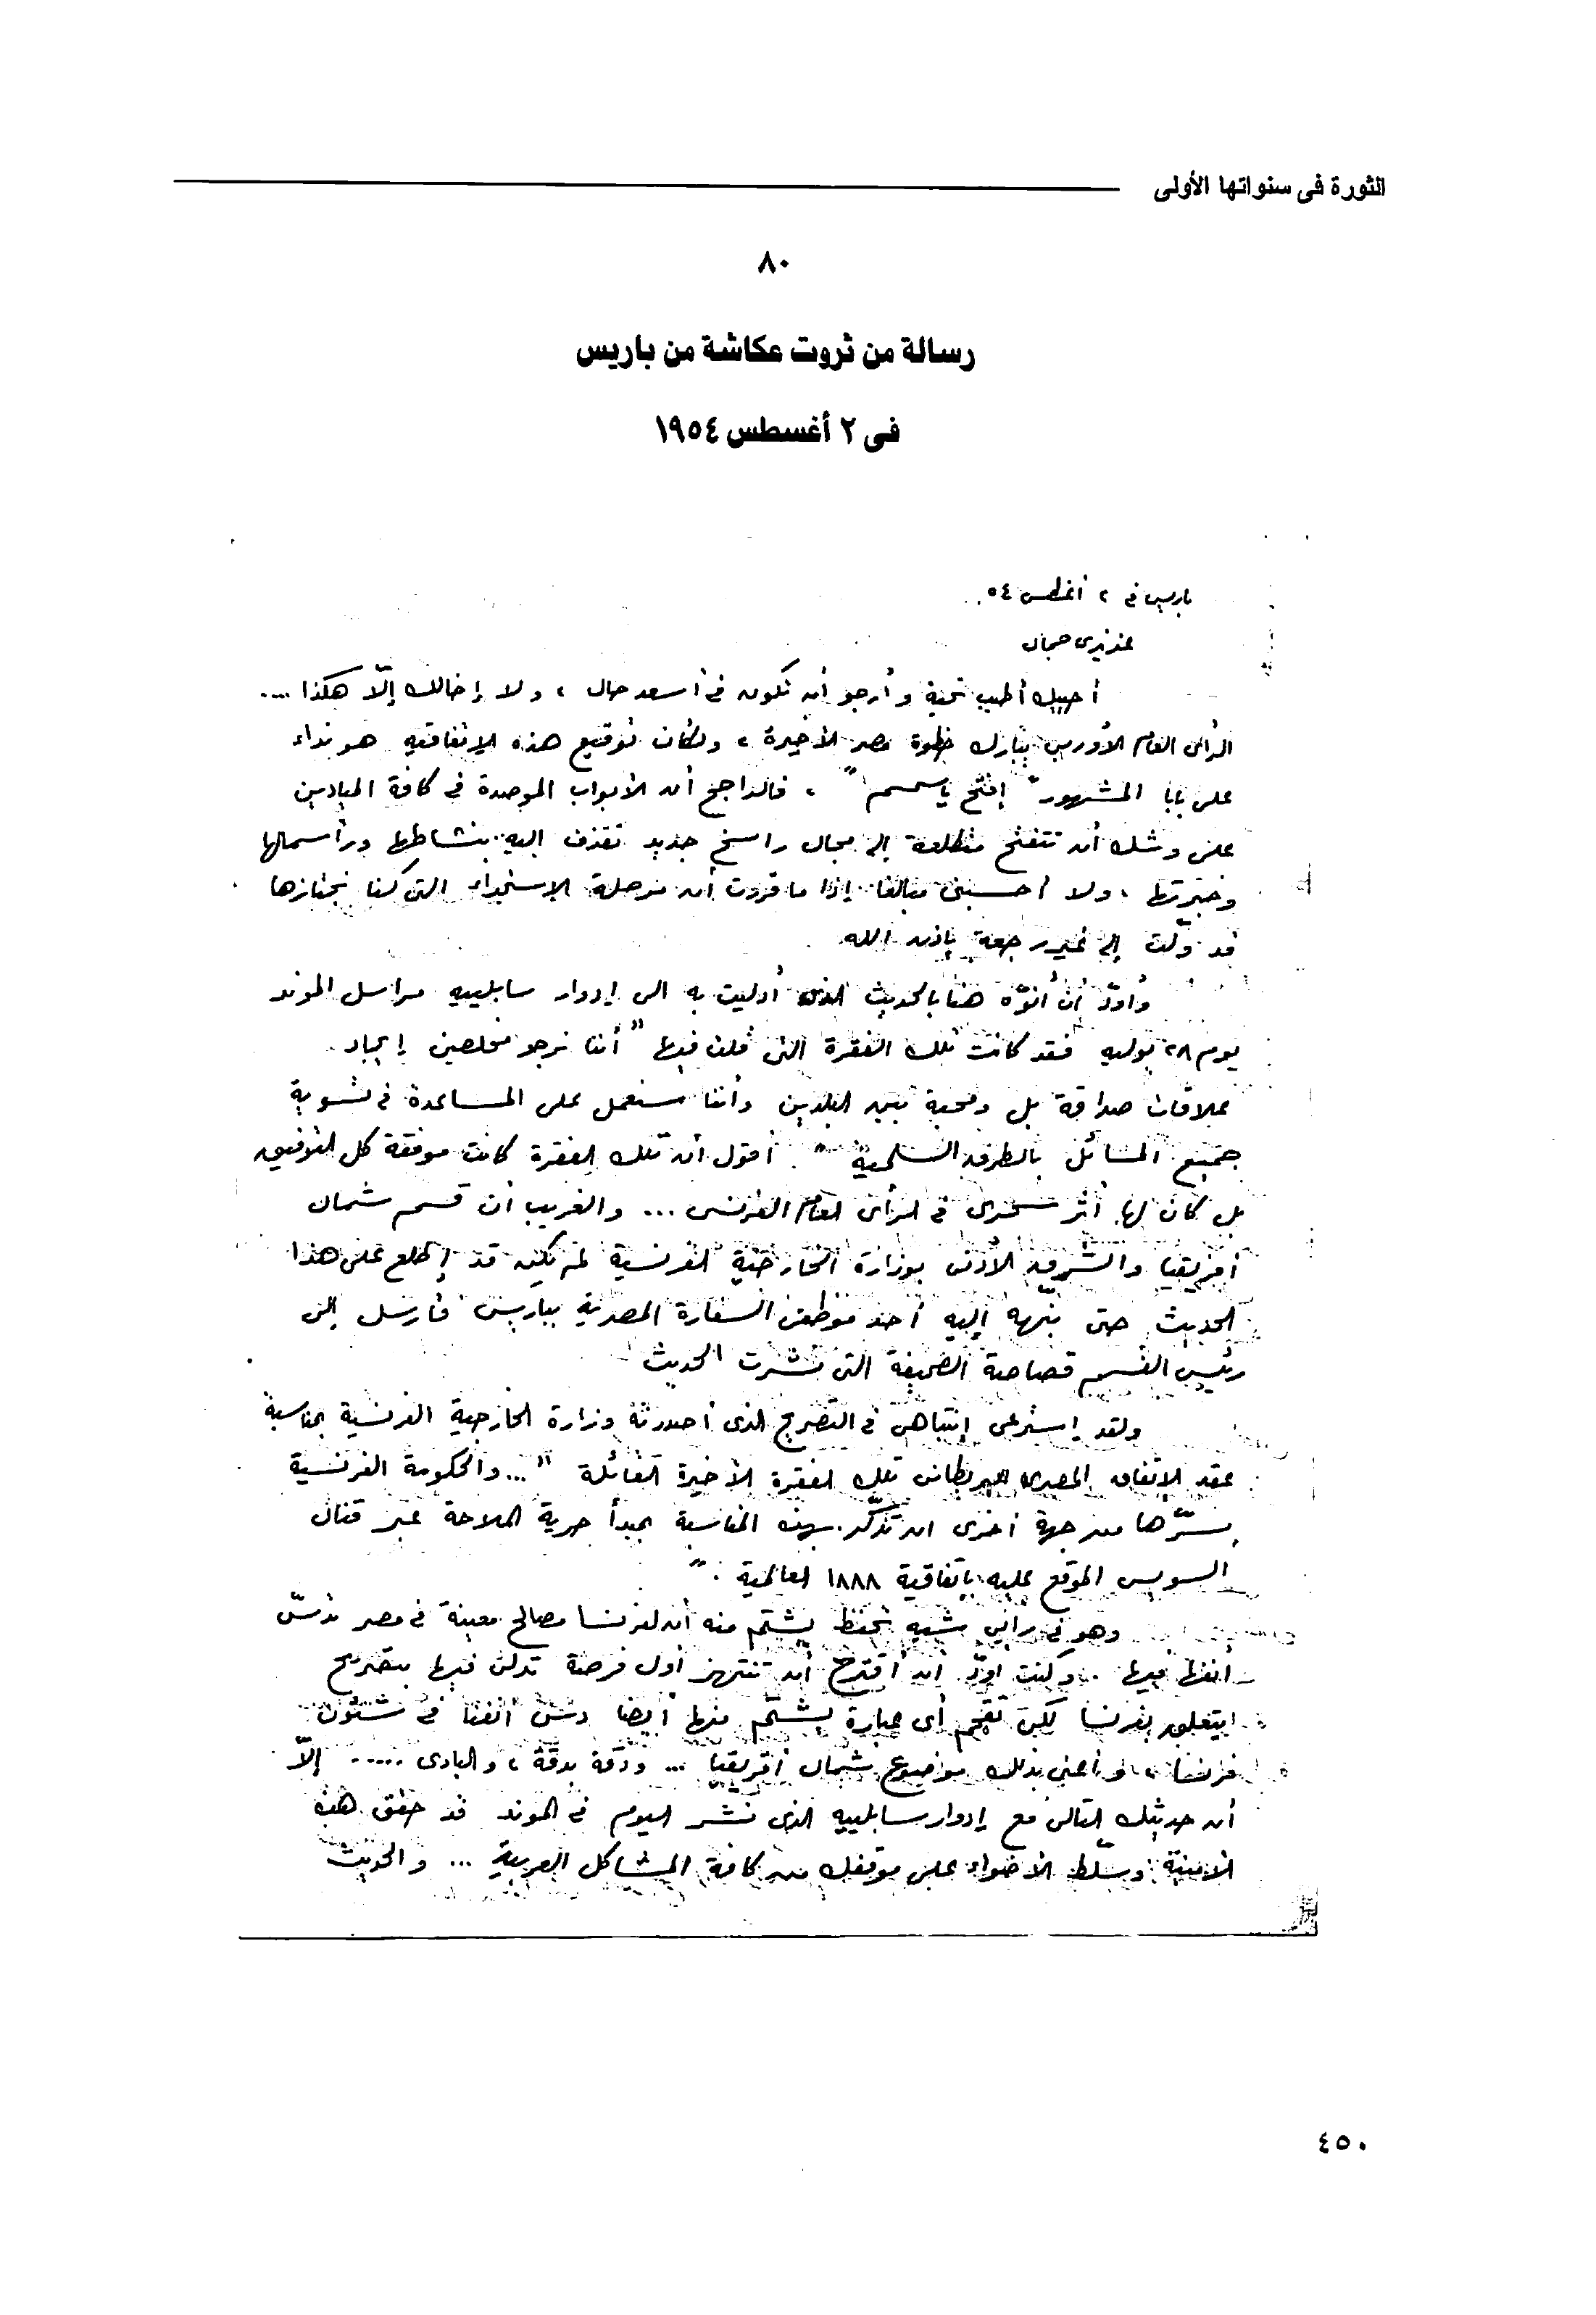 الثورة فى سنواتها الأولى
٨٠
رسالة من ثروت عكاشة من باريس
فى ٢ أغسطس ١٩٥٤
باريس فى ٢ أغسطس ٥٤
عزيزى جمال
أحييك أطيب تحية وأرجو أن تكون فى أسعد حال ، ولا إخالك إلّا هكذا ....
الرأى العام الأوربى يبارك خطوة مصر الأخيرة ، ولكان توقيع هذه الإتفاقية هو نداء
على بابا المشهور " إفتح يا سمسم " ، فالراجح أن الأبواب الموصدة فى كافة الميادين
على وشك أن تتفتح متطلعة إلى مجال راسخ جديد تقذف إليه بنشاطها ورأسمالها
وخبرتها ، ولا أحسبنى مبالغا إذا ما قررت أن مرحلة الإستجداء التى كنا نجتازها
قد ولّت إلى غير رجعة بإذن الله
وأودّ أن أنوّه هنا بالحديث الذى أدليت به الى إدوار سابلييه مراسل الموند
يوم ٢٨ يوليه فقد كانت تلك الفقرة التى قلت فيها " أننا نرجو مخلصين إيجاد
علاقات صداقة بل ومحبة بين البلدين وأننا سنعمل على المساعدة فى تسوية
جميع المسائل بالطرق السلمية " أقول أن تلك الفقرة كانت موفقة كل التوفيق
بل كان لها أثر سحرى فى الرأى العام الفرنسى ... والغريب أن قسم شمال
أفريقيا والشرق الأدنى بوزارة الخارجية الفرنسية لم يكن قد إطلع على هذا
الحديث حتى نبهه إليه أحد موظفى السفارة المصرية بباريس فأرسل إلى
رئيس القسم قصاصة الصحيفة التى نشرت الحديث
ولقد إسترعى إنتباهى فى التصريح الذى أصدرته وزارة الخارجية الفرنسية بمناسبة
عقد الإتفاق المصرى البريطانى تلك الفقرة الأخيرة القائلة " ... والحكومة الفرنسية
يسرّها من جهة أخرى أن تذكّر بهذه المناسبة بمبدأ حرية الملاحة عبر قنال
السويس الموقع عليه بإتفاقية ١٨٨٨ العالمية . "
وهو فى رأيى شبه تحفظ يشتم منه أن لفرنسا مصالح معينة فى مصر تدسّ
أنفها فيها .. وكنت أودّ أن أقترح أن تنتهز أول فرصة تدلى فيها بتصريح
يتعلق بفرنسا لكى تقحم أى عبارة يشتّم منها أيضا دسّ أنفنا فى شئون
فرنسا ، وأعنى بذلك موضوع شمال أفريقيا ... ودقة بدقة ، والبادى ..... إلّا
أن حديثك التالى مع إدوار سابلييه الذى نشر اليوم فى الموند قد حقق هذه
الأمنية وسلّط الأضواء على موقفك من كافة المشاكل العربية ... والحديث
٤٥٠